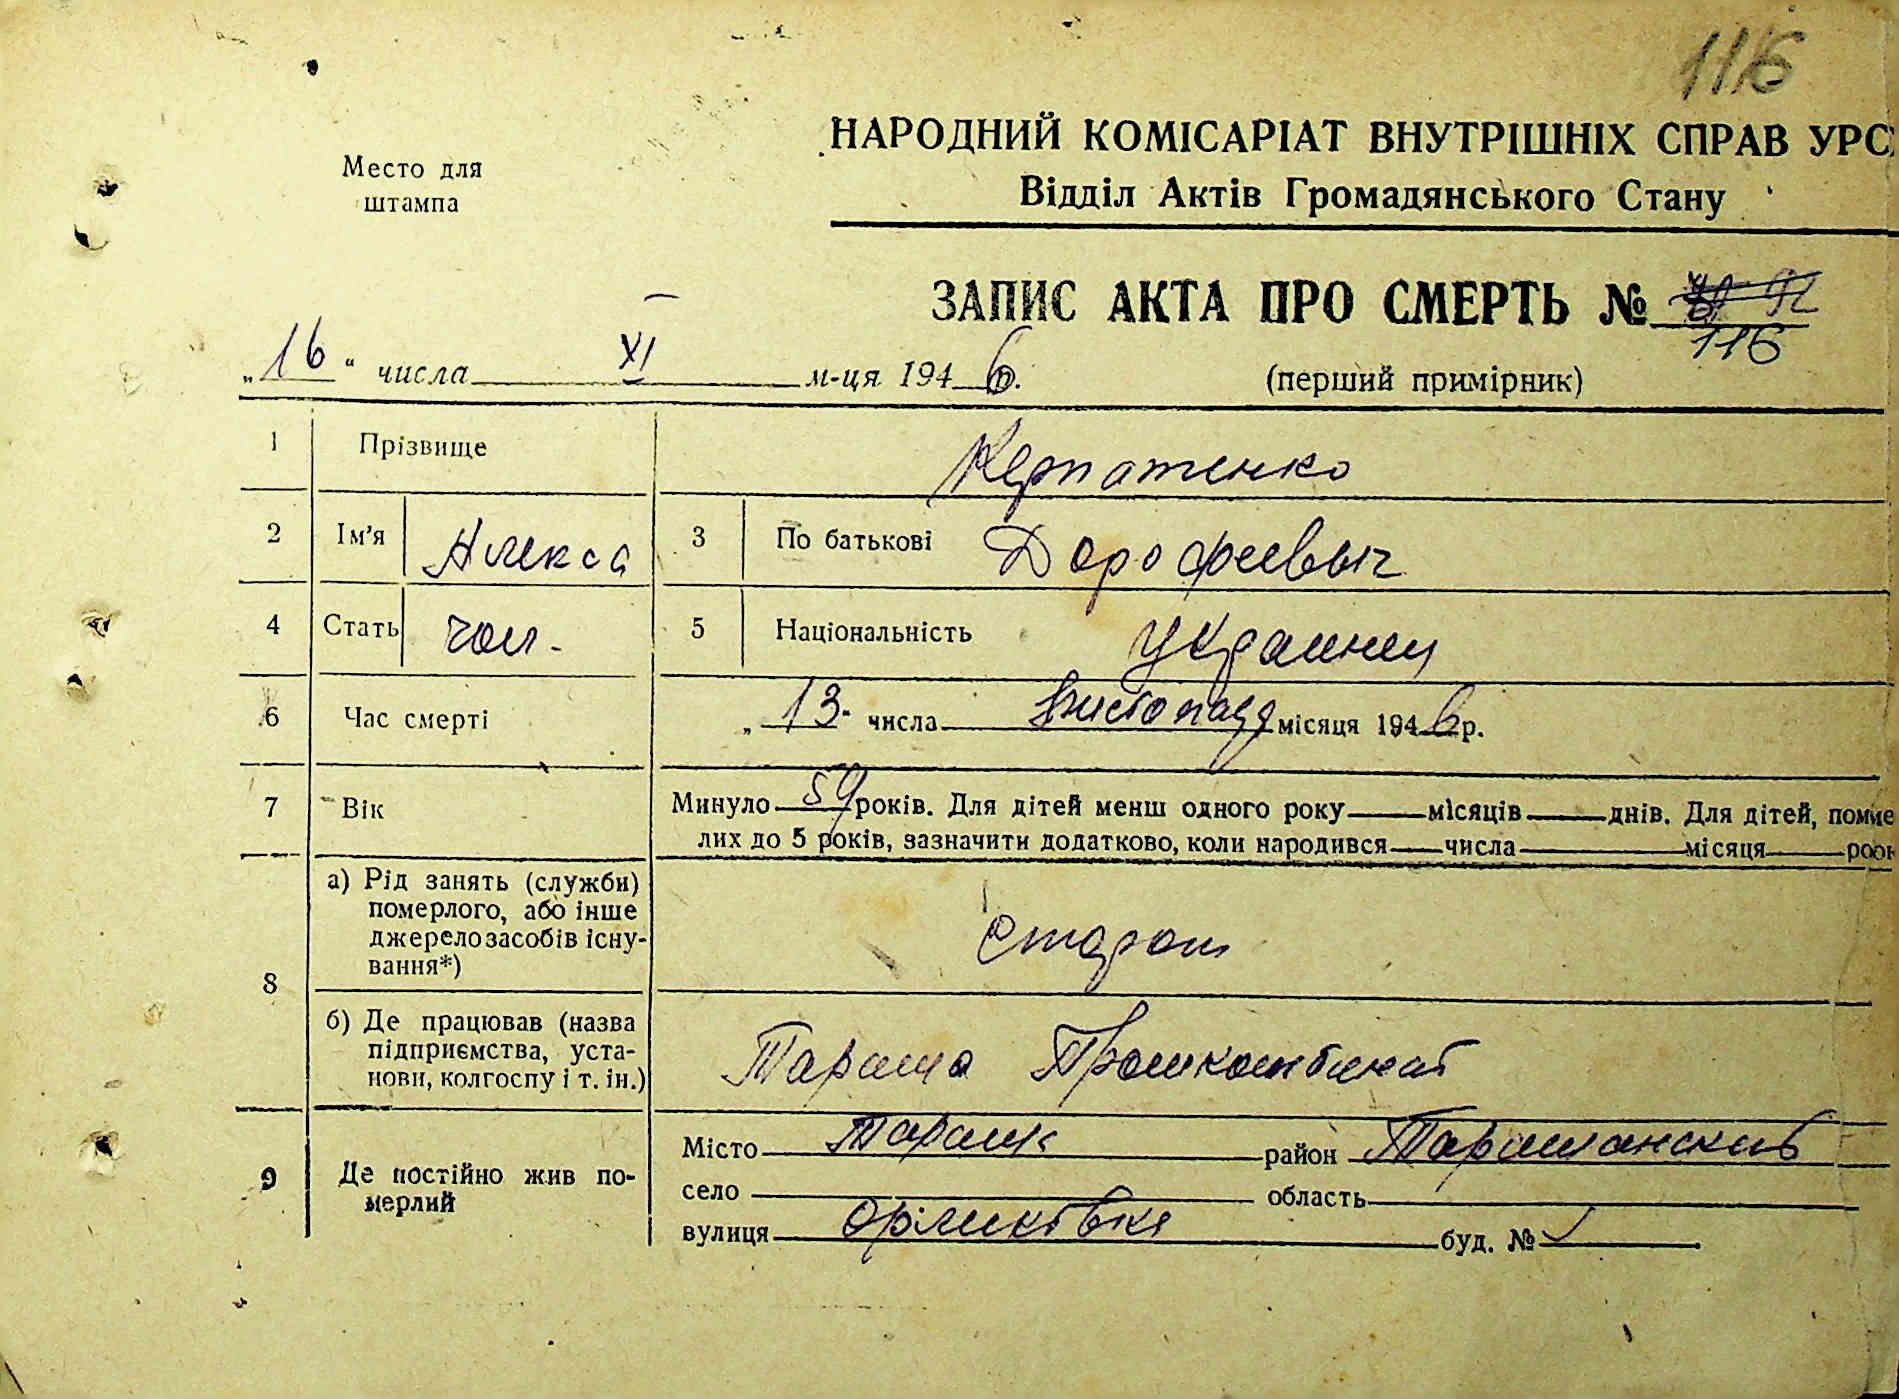 116
НАРОДНИЙ КОМІСАРІАТ ВНУТРІШНІХ СПРАВ УРС
Место для
штампа
Відділ Актів Громадянського Стану
ЗАПИС АКТА ПРО СМЕРТЬ № 92
116
„16“ числа XI м-ця 1946 р.
(перший примірник)
1 Прізвище Керпатенко
2 Ім'я Алекса 3 По батькові Дорофеевыч
4 Стать чол. 5 Національність Украинец
6 Час смерті „13" числа листопада місяця 1946 р.
7 Вік Минуло 59 років. Для дітей менш одного року місяців днів. Для дітей, помме
лих до 5 років, зазначити додатково, коли народився числа місяця роок
8 а) Рід занять (служби)
померлого, або інше
джерело засобів існу-
вання*)
Сторож
б) Де працював (назва
підприємства, уста-
нови, колгоспу і т. ін.)
Тараща Промкомбинат
9 Де постійно жив по-
мерлий
Місто Тараща район Таращанский
село область
вулиця буд. №